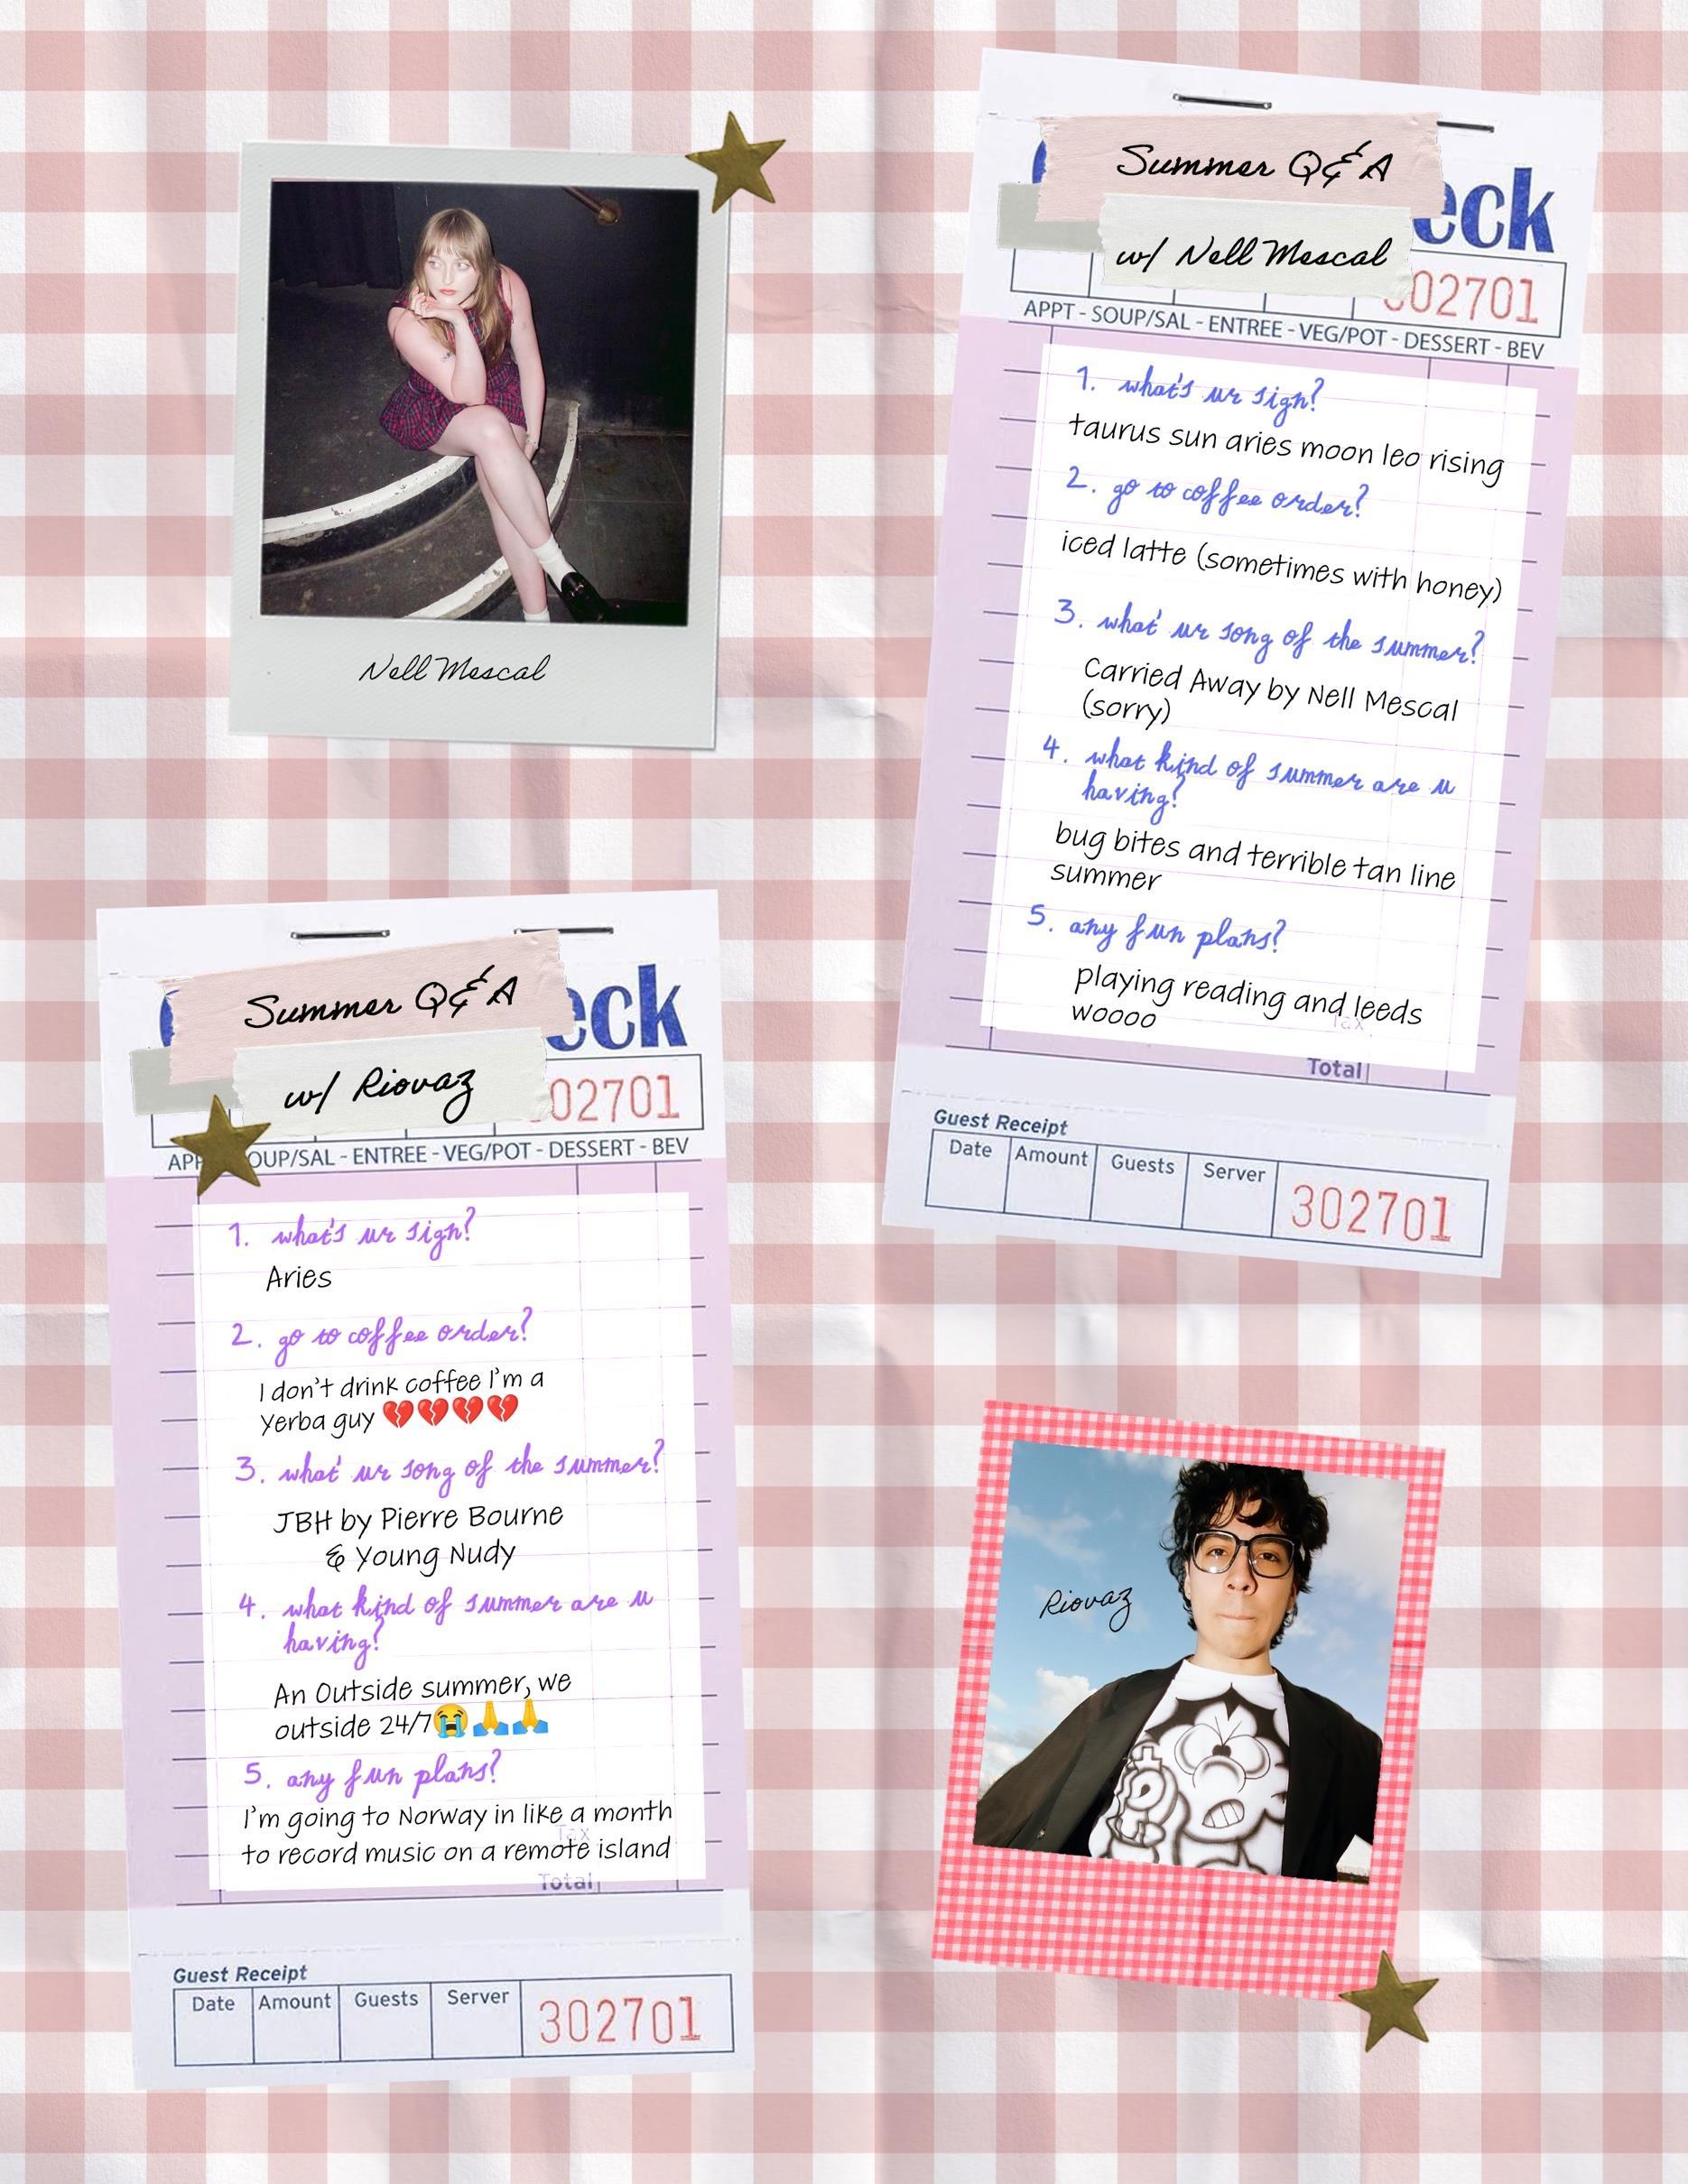 Nell Mescal
Summer Q&A
w/ Nell Mescal
eck
02701
APPT - SOUP/SAL - ENTREE - VEG/POT - DESSERT - BEV
1. what's ur sign?
taurus sun aries moon leo rising
2. go to coffee order?
iced latte (sometimes with honey)
3. what' ur song of the summer?
Carried Away by Nell Mescal
(sorry)
4. what kind of summer are u
having?
bug bites and terrible tan line
summer
5. any fun plans?
playing reading and leeds
woooo
Tax
Total
Guest Receipt
Date Amount Guests Server
302701
Summer Q&A
w/ Riovaz
eck
02701
APP OUP/SAL - ENTREE - VEG/POT - DESSERT - BEV
1. what's ur sign?
Aries
2. go to coffee order?
I don't drink coffee I'm a
Yerba guy 💔💔💔💔
3. what' ur song of the summer?
JBH by Pierre Bourne
& Young Nudy
4. what kind of summer are u
having?
An Outside summer, we
outside 24/7😭🙏🙏
5. any fun plans?
I'm going to Norway in like a month
to record music on a remote island
Tax
Total
Guest Receipt
Date Amount Guests Server
302701
Riovaz